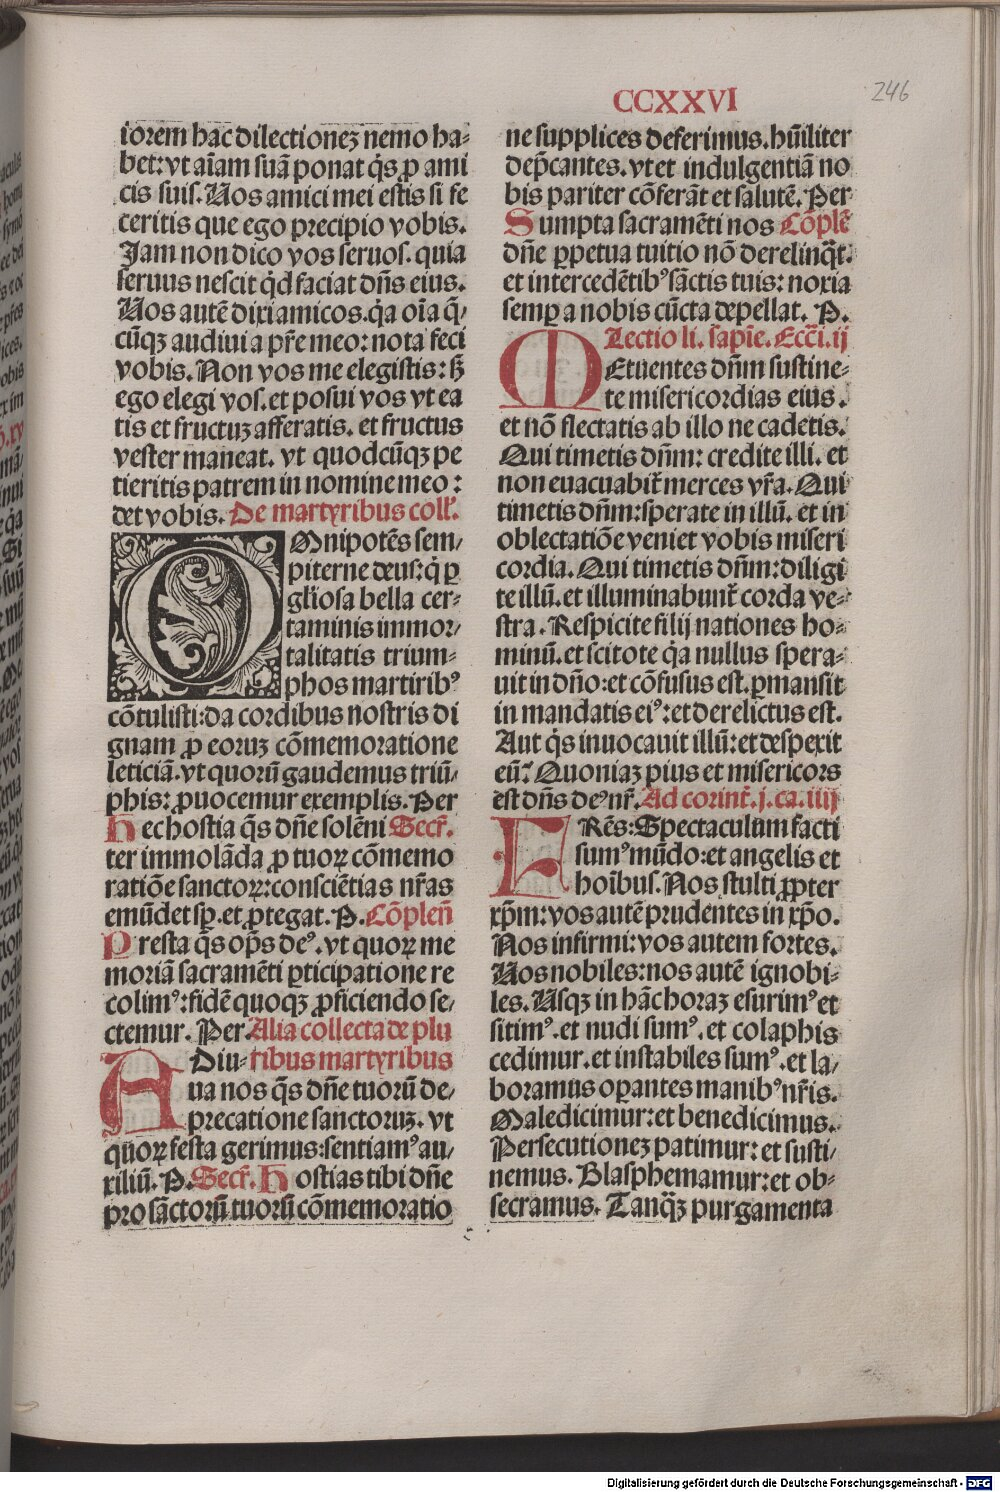 CCXXVI
246
iorem hac dilectionez nemo ha⸗
bet: vt aīam suā ponat q̇s ꝓ ami
cis suis. Vos amici mei estis si fe
ceritis que ego precipio vobis.
Jam non dico vos seruos. quia
seruus nescit q̇d faciat dn̄s eius.
Vos autē dixi amicos. q̇a oīa q̄⸗
cūqꝫ audiui a pr̄e meo: nota feci
vobis. Non vos me elegistis: sꝫ
ego elegi vos. et posui vos vt ea
tis et fructuꝫ afferatis. et fructus
vester maneat. vt quodcūqꝫ pe
tieritis patrem in nomine meo :
det vobis. De martyribus coll̄.
OMnipotēs sem⸗
piterne deus: q̇ ꝑ
gl̄iosa bella cer⸗
taminis immor⸗
talitatis trium⸗
phos martiribꝰ
cōtulisti: da cordibus nostris di
gnam ꝓ eoruꝫ cōmemoratione
leticiā. vt quorū gaudemus triū⸗
phis: ꝓuocemur exemplis. Per
Hec hostia q̄s dn̄e solēni Secr̄.
ter immolāda ꝓ tuoꝝ cōmemo
ratiōe sanctoꝝ: consciētias nr̄as
emūdet sꝑ. et ꝓtegat. P. Cōplen̄
Presta q̄s op̄s deꝰ. vt quoꝝ me
moriā sacramēti ꝑticipatione re
colimꝰ: fidē quoqꝫ ꝓficiendo se⸗
ctemur. Per Alia collecta de plu
ADiu⸗ ribus martyribus
ua nos q̄s dn̄e tuorū de⸗
precatione sanctoruꝫ. vt
quoꝝ festa gerimus: sentiamꝰ au⸗
xiliū. P. Secr̄. Hostias tibi dn̄e
pro sāctorū tuorū cōmemoratio
ne supplices deferimus. hūiliter
dep̄cantes. vt et indulgentiā no
bis pariter cōferāt et salutē. Per
Sumpta sacramēti nos Cōplē
dn̄e ꝑpetua tuitio nō derelinq̄t.
et intercedētibꝰ sāctis tuis: noxia
semꝑ a nobis cūcta depellat. P.
Lectio li. sapīe. Ecc̄i. ij
MEtuentes dn̄m sustine⸗
te misericordias eius.
et nō flectatis ab illo ne cadetis.
Qui timetis dn̄m: credite illi. et
non euacuabit̄ merces vr̄a. Qui
timetis dn̄m: sperate in illū. et in
oblectatiōe veniet vobis miseri
cordia. Qui timetis dn̄m: diligi
te illū. et illuminabunt̄ corda ve⸗
stra. Respicite filij nationes ho⸗
minū. et scitote q̇a nullus spera⸗
uit in dn̄o: et cōfusus est. ꝑmansit
in mandatis eiꝰ: et derelictus est.
Aut q̇s inuocauit illū: et despexit
eū? Quoniaꝫ pius et misericors
est dn̄s deꝰ nr̄. Ad corint̄. j. ca. iiij
FRēs: Spectaculum facti
sumꝰ mūdo: et angelis et
hoībus. Nos stulti ꝓpter
xp̄m: vos autē prudentes in xp̄o.
Nos infirmi: vos autem fortes.
Vos nobiles: nos autē ignobi⸗
les. Usqꝫ in hāc horaꝫ esurimꝰ et
sitimꝰ. et nudi sumꝰ. et colaphis
cedimur. et instabiles sumꝰ. et la⸗
boramus oꝑantes manibꝰ nr̄is.
Maledicimur: et benedicimus.
Persecutioneꝫ patimur: et susti⸗
nemus. Blasphemamur: et ob⸗
secramus. Tanq̄ꝫ purgamenta
Digitalisierung gefördert durch die Deutsche Forschungsgemeinschaft - DFG